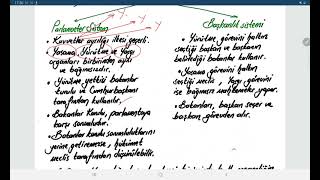 Y Y Y
Parlamenter Sistem
• Kuvvetler ayrılığı ilkesi geçerli.
• Yasama, Yürütme ve Yargı
organları birbirinden ayrı
ve bağımsızdır.
• Yürütme yetkisi bakanlar
kurulu ve Cumhurbaşkanı
tarafından kullanılır.
• Bakanlar Kurulu, parlamentoya
karşı sorumludur.
• Bakanlar kurulu sorumluluklarını
yerine getiremezse, hükümet
meclis tarafından düşürülebilir.
Başkanlık sistemi
• Yürütme, görevini halkın
seçtiği başkan ve başkanın
belirlediği bakanlar kullanır.
• Yasama görevini halkın
seçtiği meclis, Yargı görevini
ise bağımsız mahkemeler yapar.
• Bakanları, başkan seçer ve
başkan görevden alır.